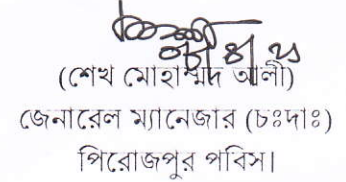 (শেখ মোহাম্মদ আলী)
জেনারেল ম্যানেজার (চঃদাঃ)
পিরোজপুর পবিস।